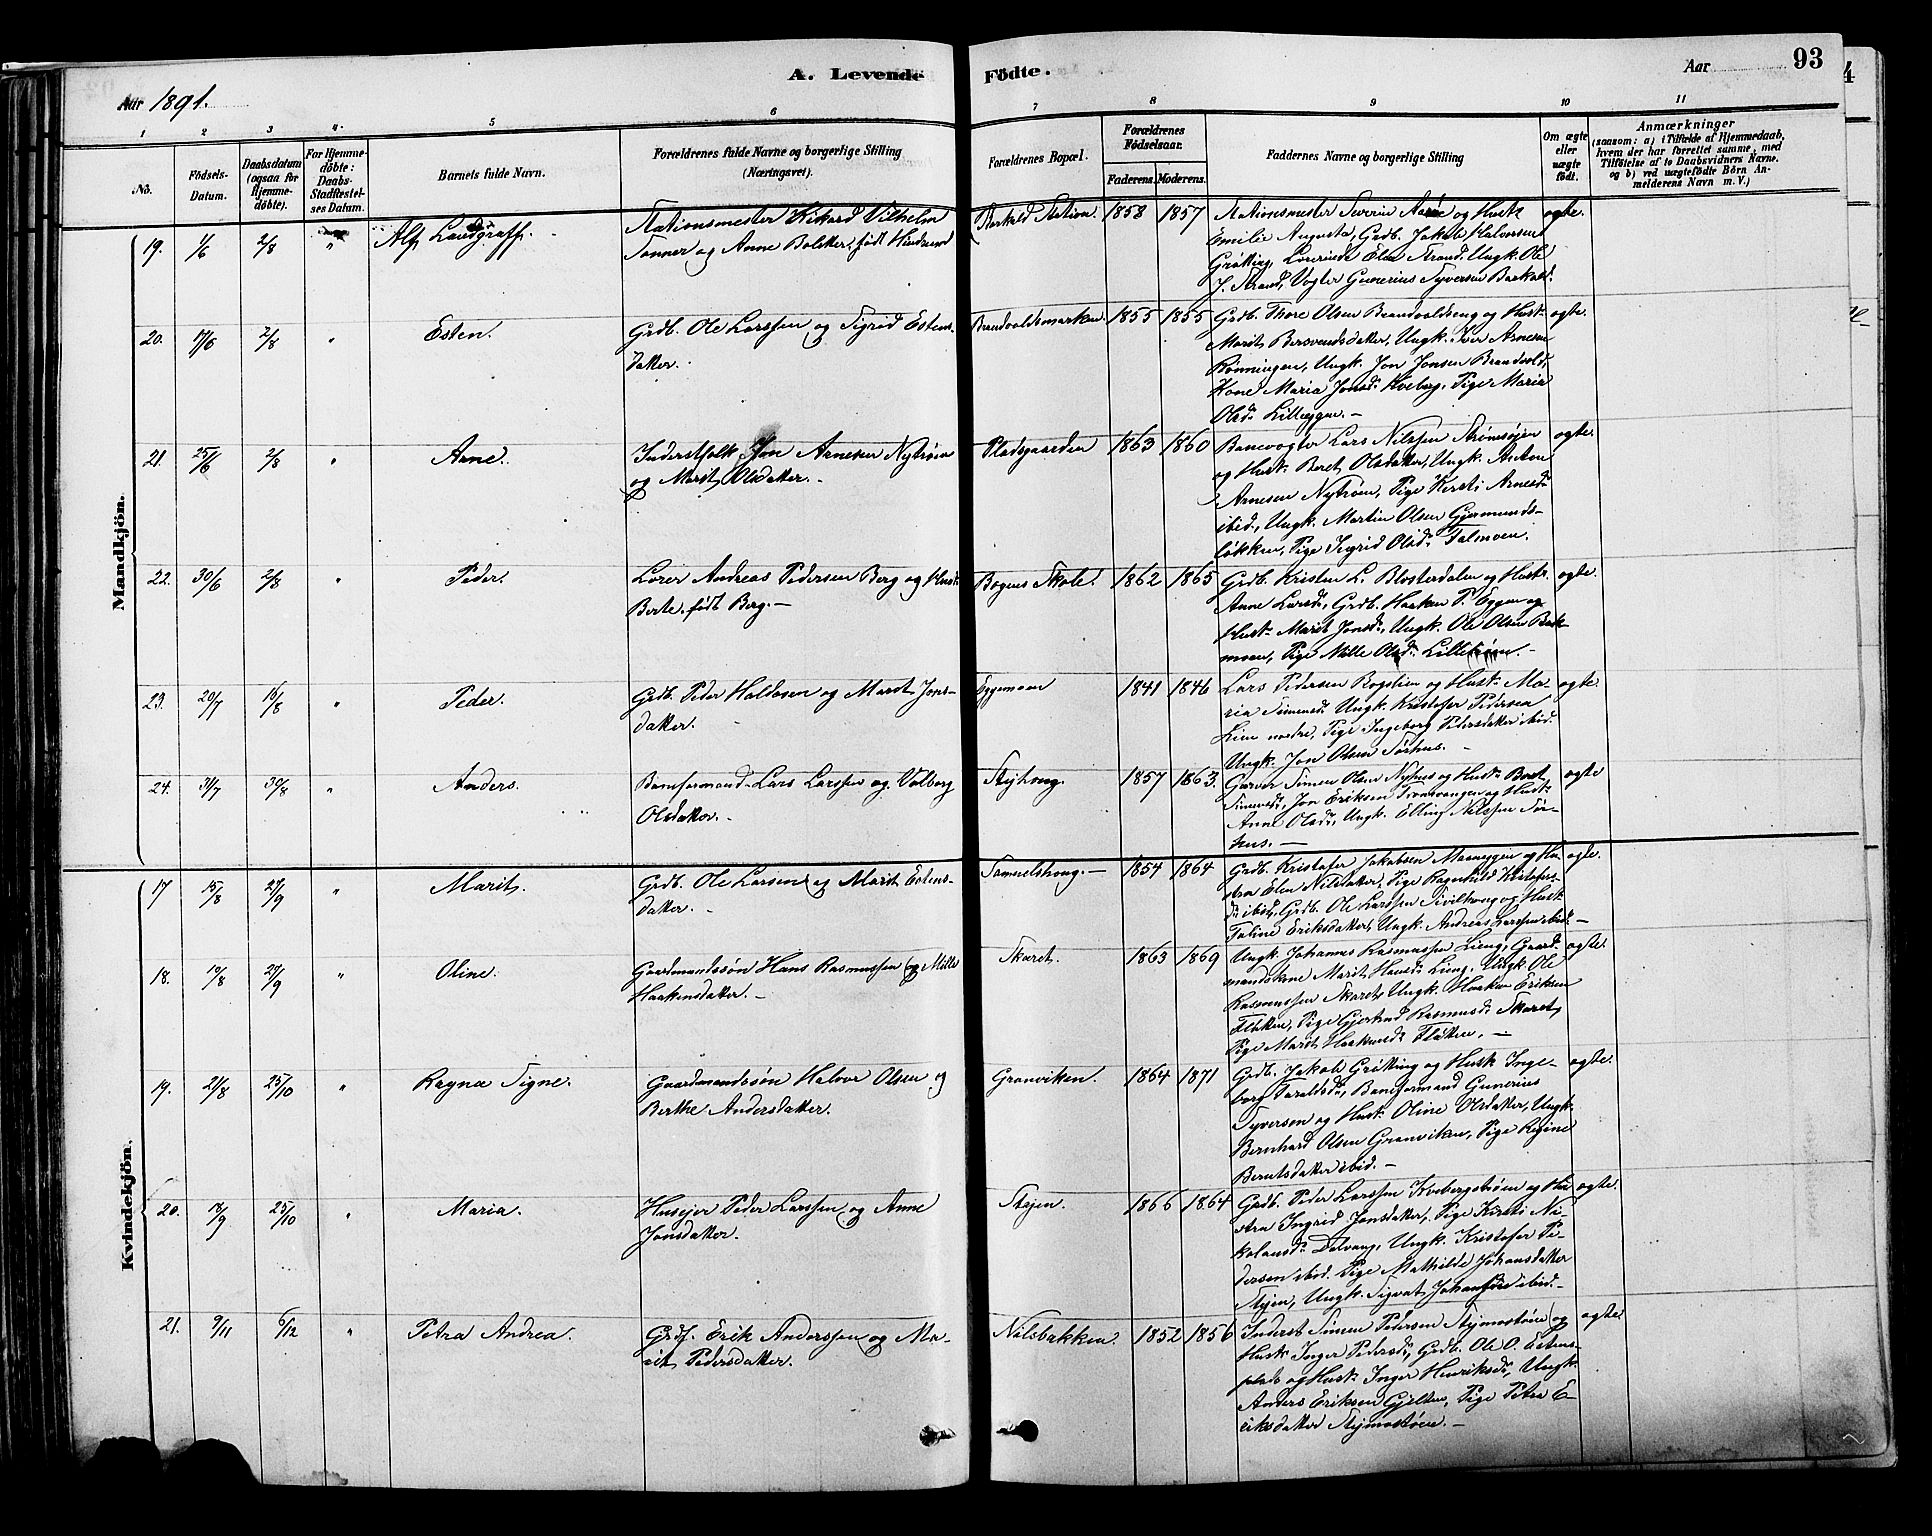 A. Levende Födte.
Aar 1891.
Aar 93
1 2 3 4. 5 6 7 8 9 10 11
No.
Födsels-Datum.
Daabsdatum (ogsaa for Hjemmedöbte).
For Hjemmedöbte: Daabs Stadfestelses Datum.
Barnets fulde Navn.
Forældrenes fulde Navne og borgerlige Stilling (Næringsvei).
Forældrenes Bopæl.
Forældrenes Födselsaar.
Faderens. Moderens.
Faddernes Navne og borgerlige Stilling
Om ægte eller uægte födt.
Anmærkninger
(saasom: a) i Tilfælde af Hjemmedaab, hvem der har forrettet samme, med Tilföielse af to Daabsvidners Navne. og b) ved uægtefödte Börn Anmelderens Navn m. V.)
Mandkjön.
19. 1/6 2/8 " Alf Landgraff.
Stationsmester Rikard Vilhelm
Tanner og Anne Bolette, født Hindrum
Barkald Station. 1858 1857
Stationsmester Severin Aarøe og Hustr.
Emilie Augusta, Grdb. Jakob Halvorsen
Grøtting, Lærerinde Elen Strand, Ungk. Ole
J. Strand, Vogter Gunerius Syversen Barkald.
ægte.
20. 17/6 2/8 " Esten.
Grdb. Ole Larssen og Sigrid Estens-
datter.
Brandvoldsmarken. 1855 1855
Grdb. Thore Olsen Brandvoldseng og Hustr.
Marit Bersvendsdatter, Ungk. Iver Arnesen
Rønningen, Ungk. Jon Jonsen Brandvold,
Kone Maria Jonsd. Kveberg, Pige Maria
Olsd. Lilleeggen. -
ægte.
21. 25/6 2/8 " Arne.
Inderstfolk Jon Arnesen Nytrøen
og Marit Olsdatter. -
Pladsgaarden 1863 1860
Banevogter Lars Nilssen Strømsøien
og Hustr. Beret Olsdatter, Ungk. Anton
Arnesen Nytrøen, Pige Kersti Arnesd.
ibid., Ungk. Martin Olsen Gjermunds-
løkken, Pige Sigrid Olsd. Talmoen.
ægte.
22. 30/6 2/8 " Peder.
Lærer Andreas Pedersen Berg og Hustr.
Berte, født Berg. -
Bogens Skole. 1862 1865
Grdb. Kristen L. Blæsterdalen og Hustr.
Anne Larsd., Grdb. Haaken P. Eggen og
Hustr. Marit Jonsd., Ungk. Ole Olsen Bæk-
moen, Pige Mille Olsd. Lilletrøen. -
ægte.
23. 20/7 16/8 " Peder.
Grdb. Peder Haldosen og Marit Jons-
datter.
Eggemoen 1841 1846
Lars Pedersen Bogslien og Hustr. Ma-
ria Simensd. Ungk. Kristofer Pedersen
Lien nordre, Pige Ingeborg Pedersdatter ibid.
Ungk. Jon Olsen Sørhus. -
ægte
24. 31/7 30/8 " Anders.
Baneformand Lars Larssen og Valborg
Olsdatter. -
Steihaug. 1857 1863.
Garver Simen Olsen Nyhus og Hustr. Beret
Simensd., Jon Eriksen Tronsvangen og Hustr.
Anne Olsd., Ungk. Elling Nilssen Sør-
hus. -
ægte
Kvindekjön.
17 15/8 27/9 " Marit.
Grdb. Ole Larsen og Marit Estens-
datter. -
Samuelshaug. - 1854 1864
Grdb. Kristofer Jakobsen Moaneggen og Hu-
stru Elen Nilsdatter, Pige Ragnhild Kristofers-
d. ibid., Grdb. Ole Larssen Sivilhaug og Hustr.
Taline Eriksdatter, Ungk. Andreas Larssen ibid. -
ægte.
18. 19/8 27/9 " Oline.
Gaardmandssøn Hans Rasmussen og Mille
Haakensdatter. -
Skaret. 1863 1869
Ungk. Johannes Rasmussen Lieng, Gaard-
mandskone Marit Hansd. Lieng, Ungk. Ole
Rasmussen Skaret, Ungk. Haaken Eriksen
Fløtten, Pige Gjertrud Rasmusd. Skaret,
Pige Marit Haakensd. Fløtten. -
ægte.
19. 21/8 25/10 " Ragna Signe.
Gaardmandssøn Halvor Olsen og
Berthe Andersdatter.
Granviken. 1864 1871
Grdb. Jakob Grøtting og Hustr. Inge-
borg Taraldsd., Baneformand Gunerius
Syversen og Hustr. Oline Olsdatter, Ungk.
Bernhard Olsen Granviken, Pige Regine
Berntsdatter ibid. -
ægte.
20. 18/9 25/10 " Maria.
Huseier Peder Larssen og Anne
Jonsdatter.
Steien. 1866 1864
Grdb. Peder Larssen Kvebergstrøen og Hu-
stru Ingrid Jonsdatter, Pige Kirsti Ni-
kolausd. Dalvang, Ungk. Kristofer Pe-
dersen ibid. Pige Mathilde Johansdatter
Steien, Ungk. Sigvat Johansen ibid. -
ægte.
21. 9/11 6/12 " Petra Andrea.
Grdf. Erik Anderssen og Ma-
rit Pedersdatter.
Nilsbakken. 1852 1856
Inderst Simen Pedersen Steimostøen og
Hustr. Inger Pedersd., Grdb. Ole O. Estens-
plads og Hustr. Inger Henriksd., Ungk.
Anders Eriksen Gjelten, Pige Petra E-
riksdatter Steimostøen. -
ægte.